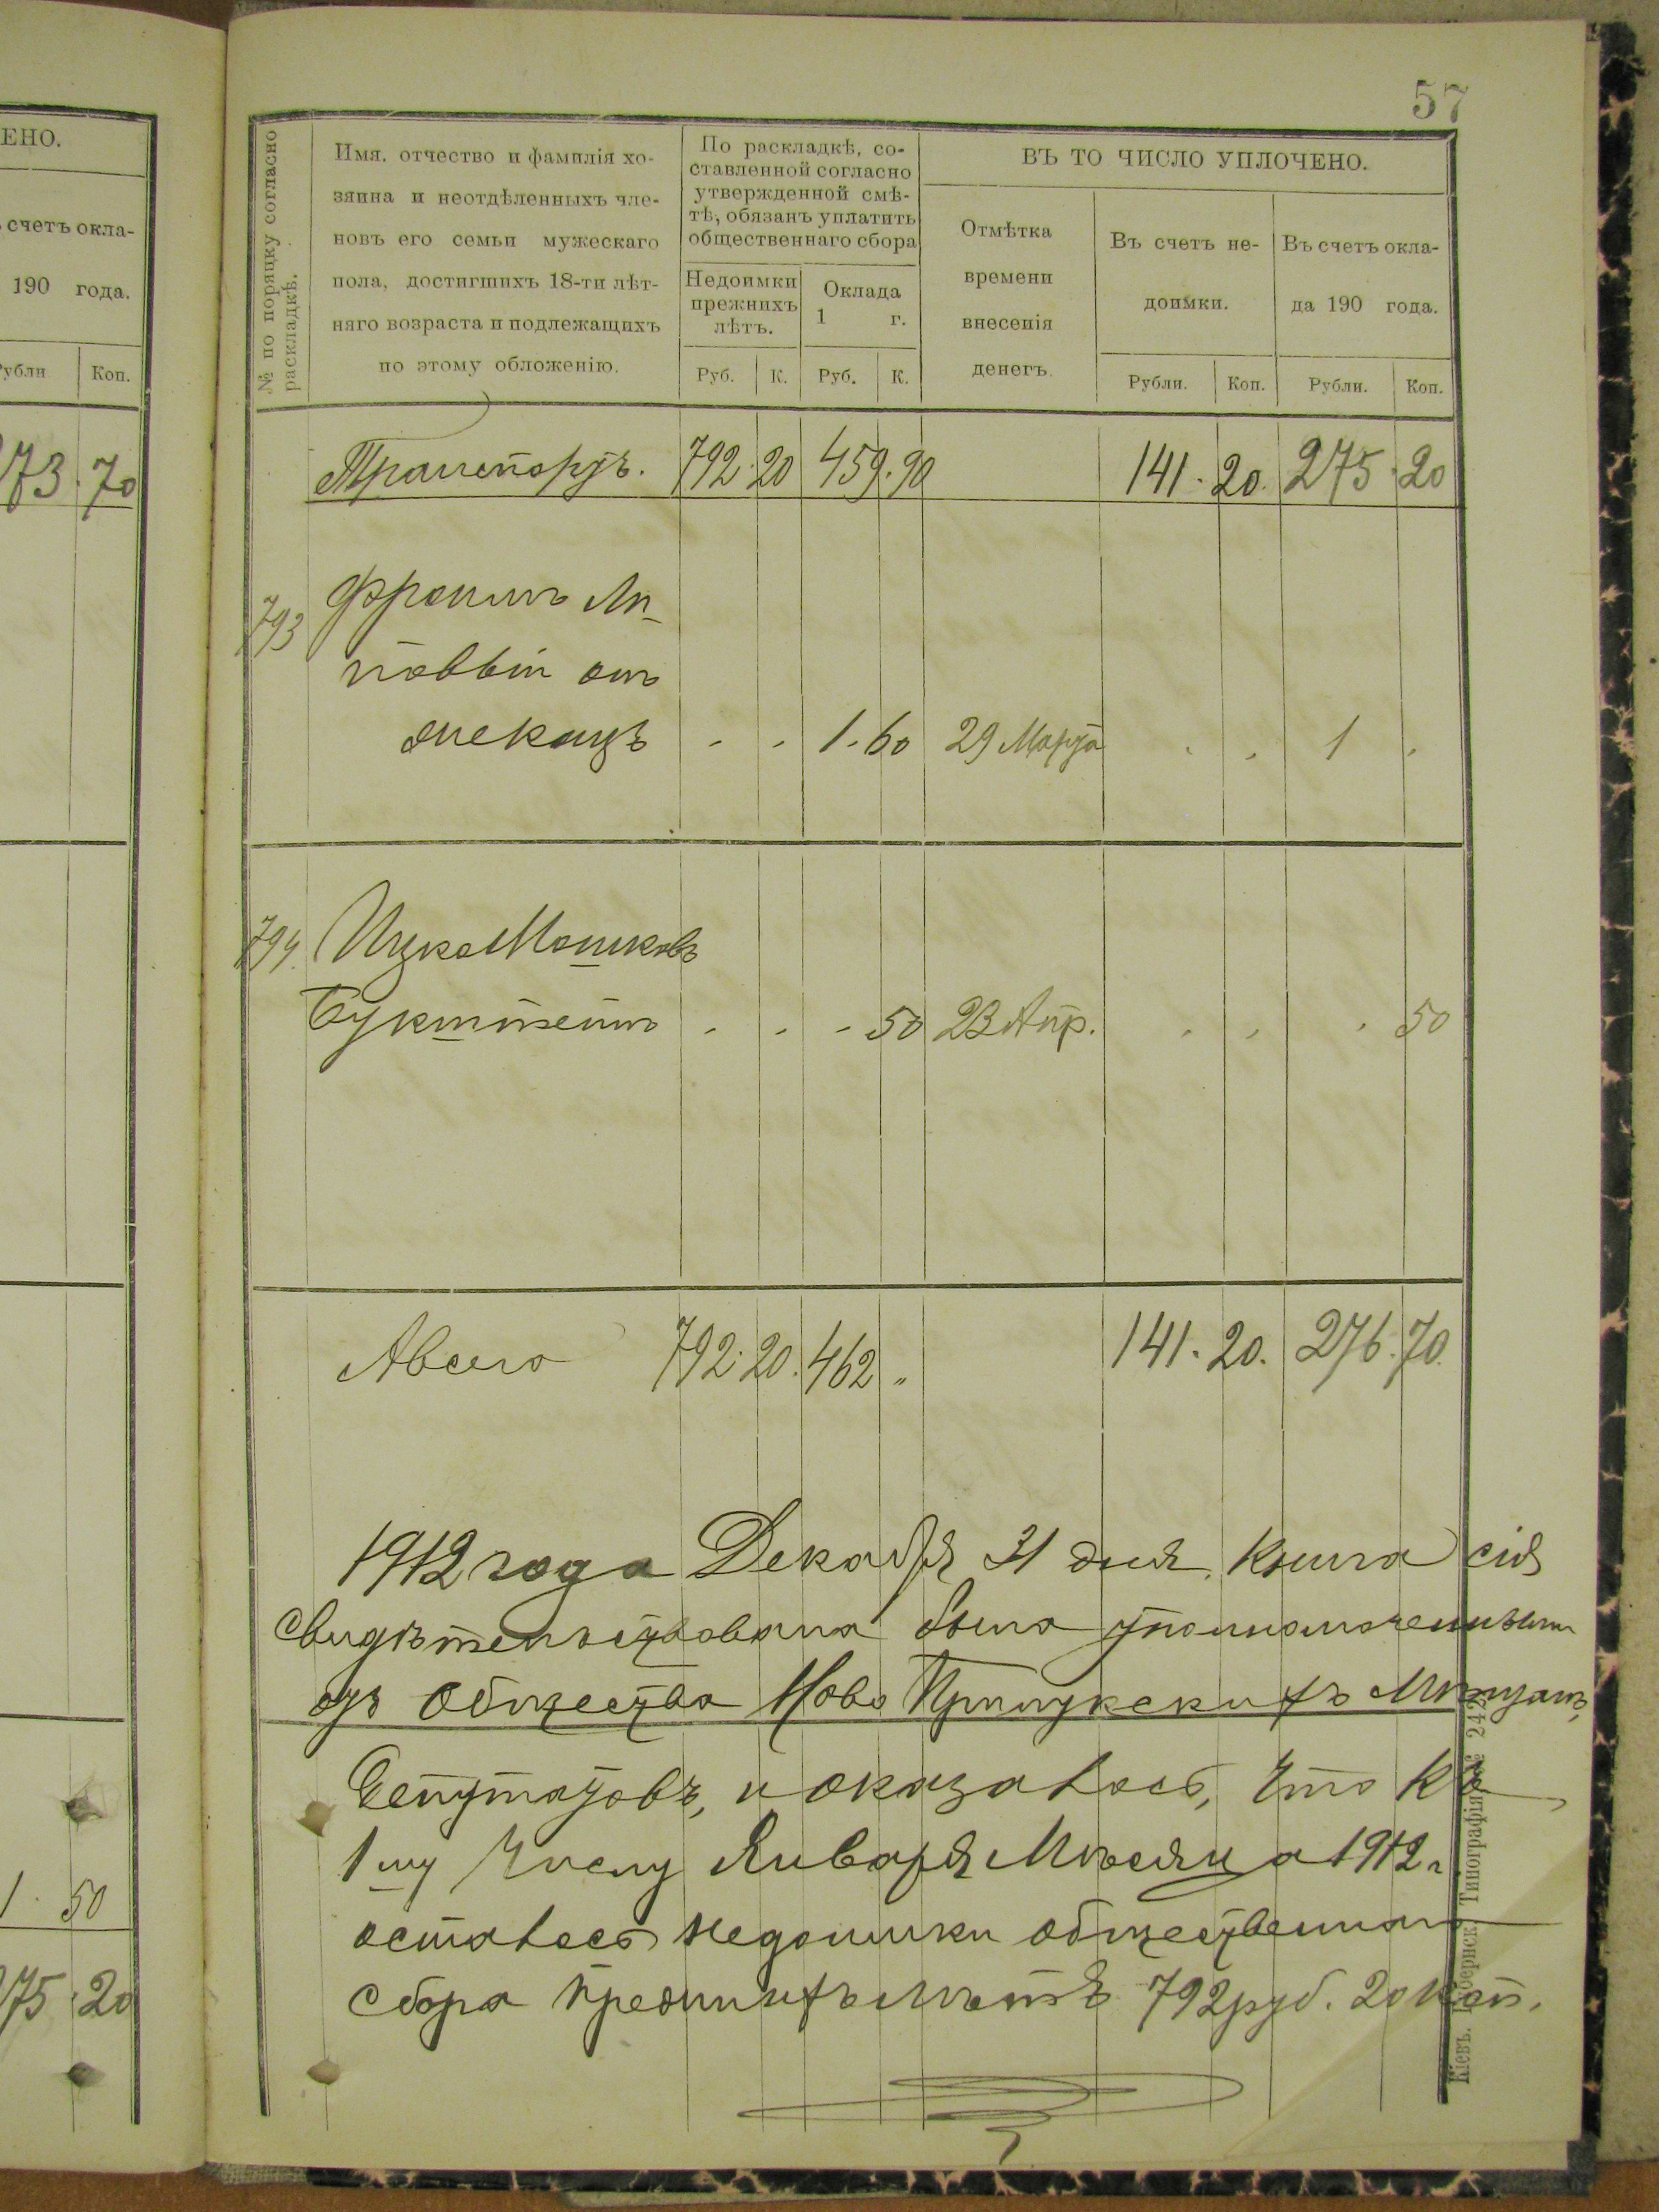 ЕНО.
ъ счетъ окла-
190 года.
Рубли Коп.
173. 70
1. 50
175. 20
57
№ по порядку согласно
раскладкѣ.
Имя, отчество и фамилія хо-
зяина и неотдѣленныхъ чле-
новъ его семьи мужескаго
пола, достигшихъ 18-ти лѣт-
няго возраста и подлежащихъ
по этому обложенію.
По раскладкѣ, со-
ставленной согласно
утвержденной смѣ-
тѣ, обязанъ уплатить
общественнаго сбора
Недоимки
прежнихъ
лѣтъ.
Оклада
1 г.
Руб. К. Руб. К.
ВЪ ТО ЧИСЛО УПЛОЧЕНО.
Отмѣтка
времени
внесенія
денегъ.
Въ счетъ не-
доимки.
Въ счетъ окла-
да 190 года.
Рубли. Коп. Рубли. Коп.
Транспортъ. 792. 20 459. 90 141. 20. 275. 20
793 Фроимъ Ли-
повый
1. 60 29 Марта 1
794. Ицко Мошковъ
Букштейнъ 50 23 Апр. 50
Авсего 792. 20. 462 „ 141. 20. 276. 70.
1912 года Декабря 31 дня. Книга сія
свидѣтельствована была уполномоченными
отъ Общества Ново Прилукскихъ Мѣщанъ,
Депутатовъ, и оказалось, что Ко
1му Числу Января Мѣсяца 1912 г
осталось недоимки общественнаго
сбора прежнихъ лѣтъ 792 руб. 20 коп.
Кіевъ. Губернск. Типографія. № 242